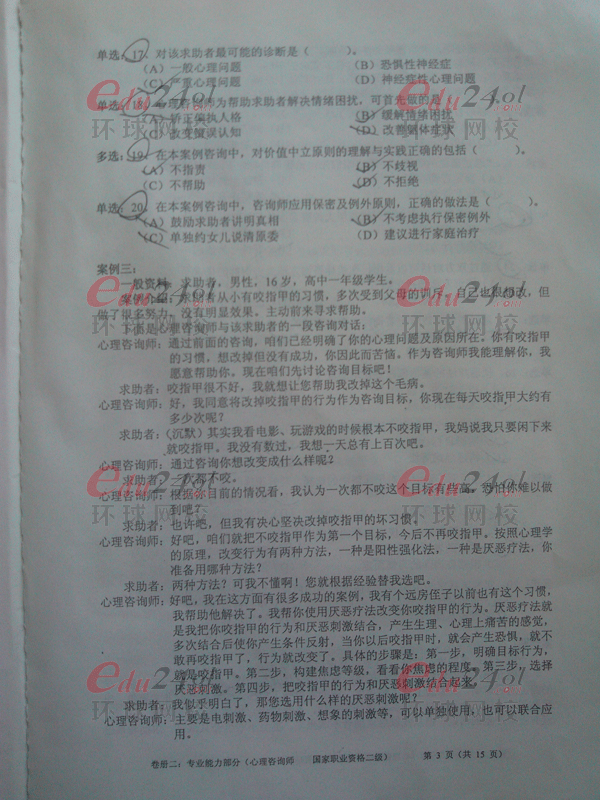 单选：17、对该求助者最可能的诊断是（　　）。
（A）一般心理问题　　（B）恐惧性神经症
（C）严重心理问题　　（D）神经症性心理问题
单选：18、心理咨询师为帮助求助者解决情绪困扰，可首先做的是（　　）。
（A）矫正偏执人格　　（B）缓解情绪困扰
（C）改变错误认知　　（D）改善躯体症状
多选：19、在本案例咨询中，对价值中立原则的理解与实践正确的包括（　　）。
（A）不指责　　（B）不歧视
（C）不帮助　　（D）不拒绝
单选：20、在本案例咨询中，咨询师应用保密及例外原则，正确的做法是（　　）。
（A）鼓励求助者讲明真相　　（B）不考虑执行保密例外
（C）单独约女儿说清原委　　（D）建议进行家庭治疗
案例三：
一般资料：求助者，男性，16岁，高中一年级学生。
案例介绍：求助者从小有咬指甲的习惯，多次受到父母的训斥。自己也很想改，但
做了很多努力，没有明显效果。主动前来寻求帮助。
下面是心理咨询师与该求助者的一段咨询对话：
心理咨询师：通过前面的咨询，咱们已经明确了你的心理问题及原因所在。你有咬指甲
的习惯，想改掉但没有成功，你因此而苦恼。作为咨询师我能理解你，我
愿意帮助你。现在咱们先讨论咨询目标吧！
求助者：咬指甲很不好，我就想让您帮助我改掉这个毛病。
心理咨询师：好，我同意将改掉咬指甲的行为作为咨询目标，你现在每天咬指甲大约有
多少次呢？
求助者：（沉默）其实我看电影、玩游戏的时候根本不咬指甲，我妈说我只要闲下来
就咬指甲。我没有数过，我想一天总有上百次吧。
心理咨询师：通过咨询你想改变成什么样呢？
求助者：一次都不咬。
心理咨询师：根据你目前的情况看，我认为一次都不咬这个目标有些高，恐怕你难以做
到吧？
求助者：也许吧，但我有决心坚决改掉咬指甲的坏习惯。
心理咨询师：好吧，咱们就把不咬指甲作为第一个目标，今后不再咬指甲。按照心理学
的原理，改变行为有两种方法，一种是阳性强化法，一种是厌恶疗法，你
准备用哪种方法？
求助者：两种方法？可我不懂啊！您就根据经验替我选吧。
心理咨询师：好吧，我在这方面有很多成功的案例，我有个远房侄子以前也有这个习惯，
我帮助他解决了。我帮你使用厌恶疗法改变你咬指甲的行为。厌恶疗法就
是我把你咬指甲的行为和厌恶刺激结合，产生生理、心理上痛苦的感觉，
多次结合后使你产生条件反射，当你以后咬指甲时，就会产生恐惧，就不
敢再咬指甲了，行为就改变了。具体的步骤是：第一步，明确目标行为，
就是咬指甲。第二步，构建焦虑等级，看看你焦虑的程度。第三步，选择
厌恶刺激。第四步，把咬指甲的行为和厌恶刺激结合起来。
求助者：我似乎明白了，那您选用什么样的厌恶刺激呢？
心理咨询师：主要是电刺激、药物刺激、想象的刺激等，可以单独使用，也可以联合应
用。
卷册二：专业能力部分（心理咨询师　国家职业资格二级）　第 3 页（共 15 页）